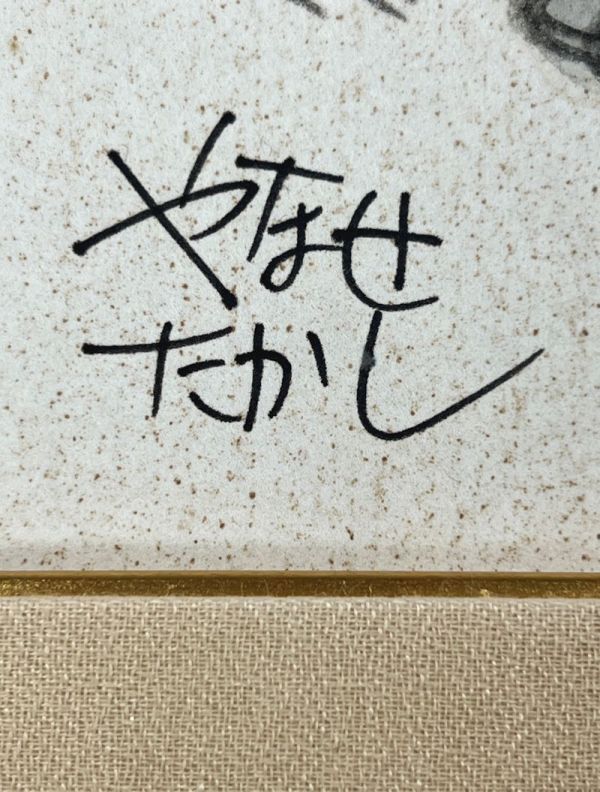 やなせ
たかし